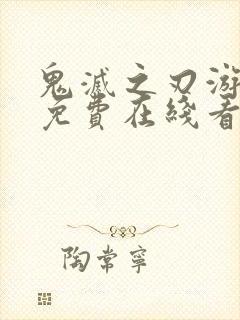 鬼滅之刃游
免費在綫看
陶常寧